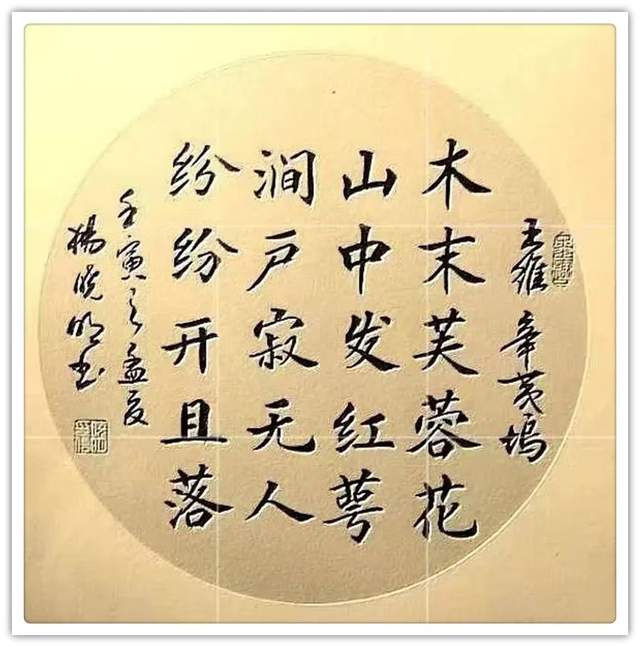 王维 辛荑坞
木末芙蓉花
山中发红萼
涧户寂无人
纷纷开且落
壬寅之孟夏
杨晓明书